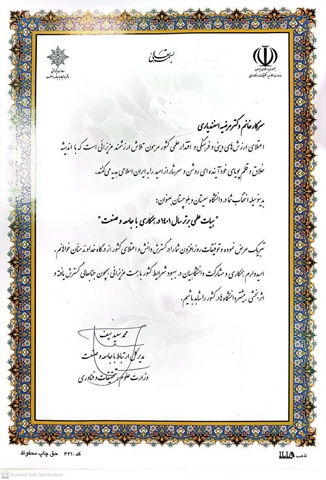 بسمه تعالی
سرکار خانم دکتر مرضیه اسفندیاری
اعتلای ارزش‌های دینی و فرهنگی و اقتدار علمی کشور مرهون تلاش ارزشمند عزیزانی است که با اندیشه
خلاق و قلم پویای خود آینده‌ای روشن و سرشار از امید را به ایران اسلامی هدیه می‌کنند.
بدینوسیله انتخاب شما در دانشگاه سیستان و بلوچستان بعنوان:
"هیات علمی برتر سال ۱۴۰۱ در همکاری با جامعه و صنعت"
تبریک عرض نموده و توفیقات روزافزون شما را در گسترش دانش و اعتلای کشور از درگاه خداوند منان خواهانم.
امیدوارم همکاری و مشارکت دانشگاهیان در بهبود شرایط کشور با همت عزیزانی همچون جنابعالی گسترش یافته و
اثربخشی بیشتر دانشگاه‌ها در کشور را شاهد باشیم.
محمد سعید سیف
مدیر کل ارتباط با جامعه و صنعت
وزارت علوم، تحقیقات و فناوری
کد: ۳۲۱ حق چاپ محفوظ
Scanned with CamScanner